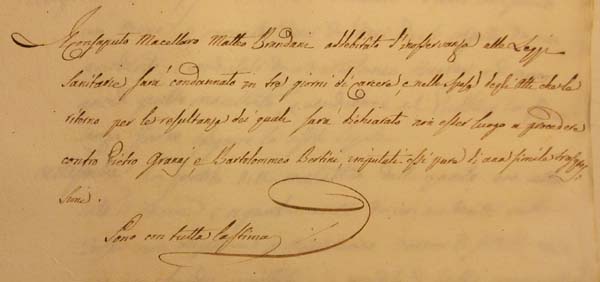 Il consaputo Macellaro Matteo Brandani addebitato d'inosservanza alle Leggi
Sanitarie sarà condannato in tre giorni di carcere, e nelle spese degli atti che lo
per le risultanze dei quali sarà dichiarato non esser luogo a procedere
contro Pietro Granaj e Bartolommeo Bertini, imputati essi pure di una simile trasgres
sione.
Sono con tutta la stima